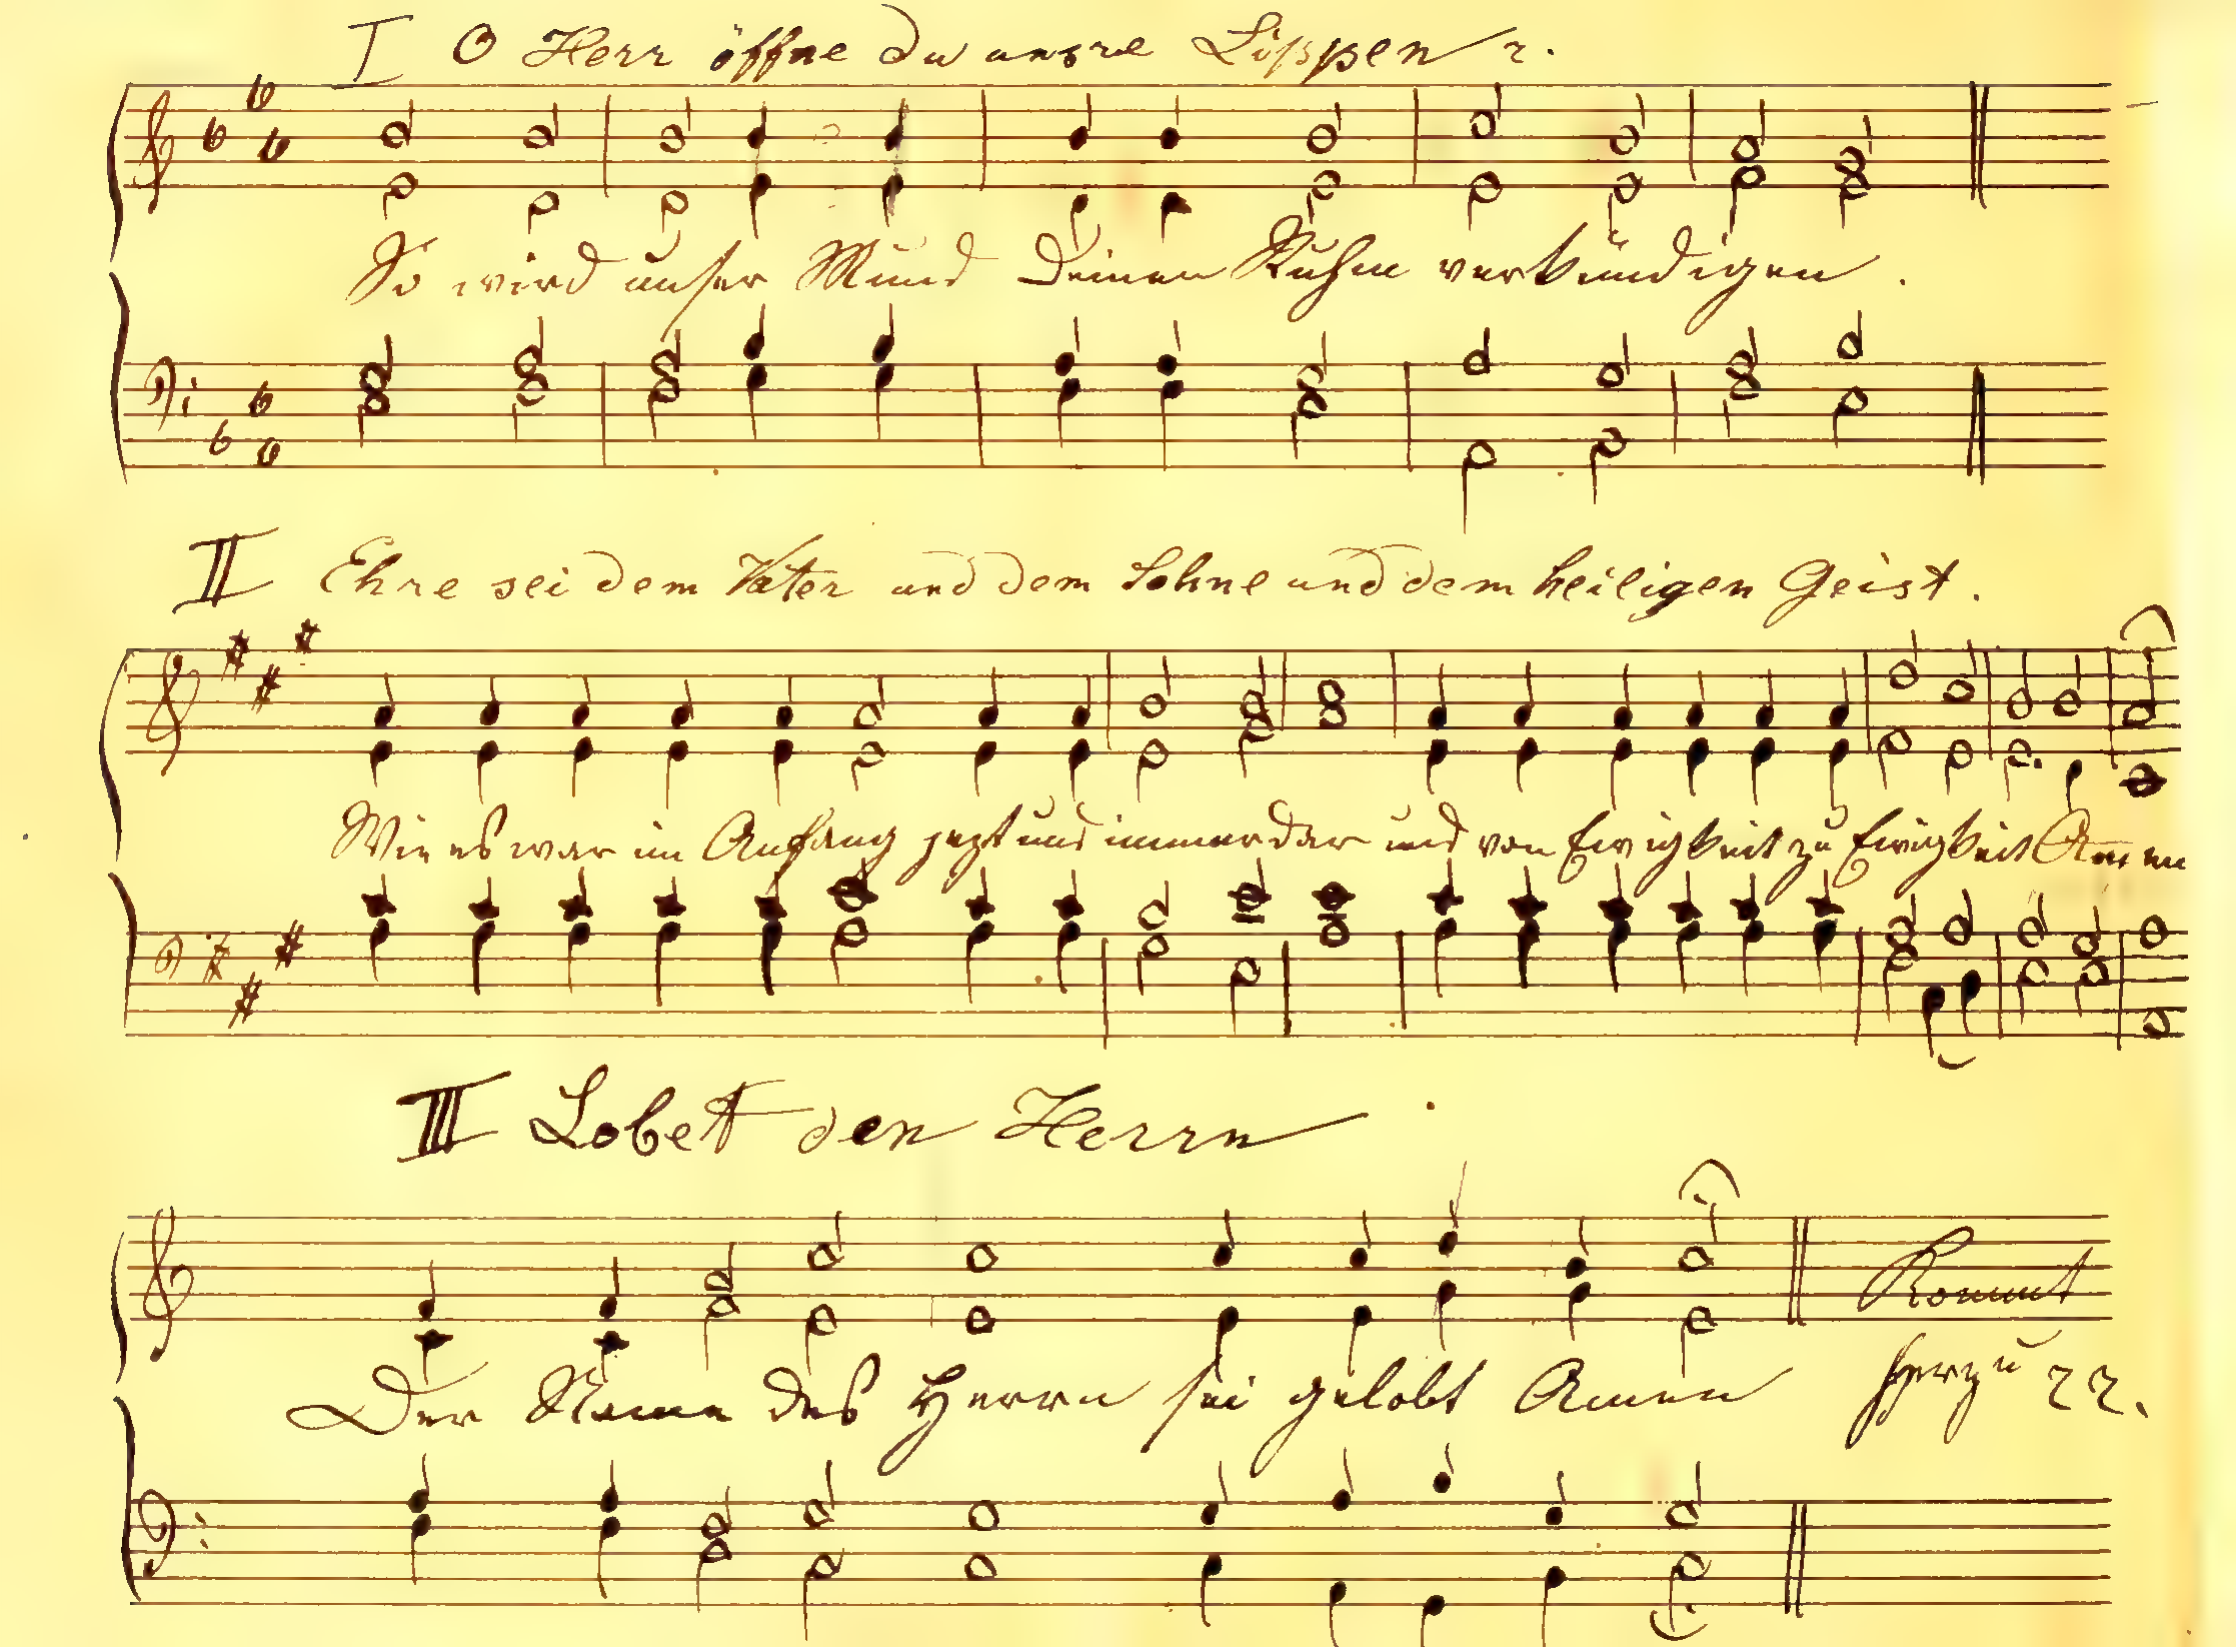 I O Herr öffne du unsre Lippen
So wird unser Mund deinen Ruhm verkündigen.
II Ehre sei dem Vater und dem Sohne und dem heiligen Geist.
Wie es war im Anfang jezt und immerdar und von Ewigkeit zu Ewigkeit Amen
III Lobet den Herrn
Der Name des Herrn sei gelobt Amen
Kommt
herzu